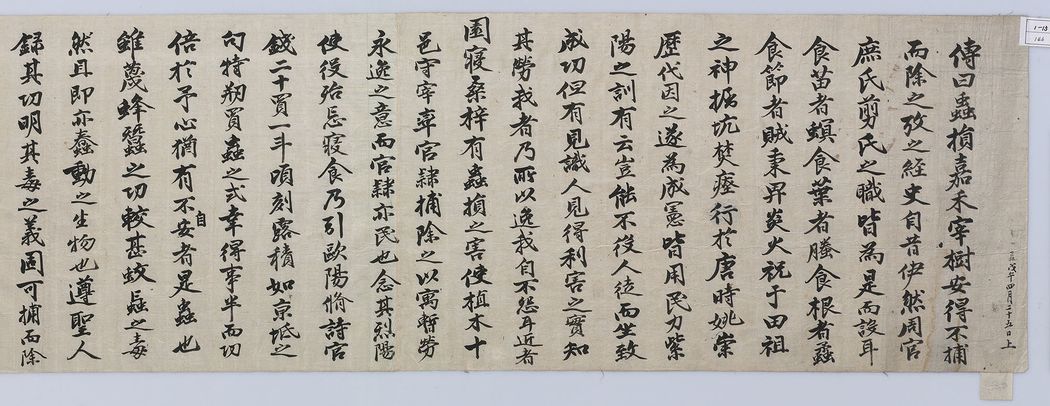 1-18
戊午四月二十五日上
傳曰蟲損嘉禾宰樹安得不捕
而除之攷之経史自昔伊然周官
庶氏剪氏之職皆為是而設耳
食苗者螟食葉者螣食根者蟊
食節者賊秉畀炎火祝于田祖
之神掘坑焚瘞行於唐時姚崇
歷代因之遂為成憲皆用民力紫
陽之訓有云豈能不役人徒而坐致
成功但有見識人見得利害之實知
其勞我者乃所以逸我自不怨耳近者
園寢桑梓有蟲損之害使植木十
邑守宰率官隷捕除之以寓暫勞
永逸之意而官隷亦民也念其烈陽
使役殆忘寢食乃引歐陽脩詩官
錢二十買一斗頃刻露積如京坻之
句特刱買蟲之式幸得事半而功
倍於予心猶有不自安者是蟲也
雖蔑蜂蠶之功較甚蚊蝱之毒
然且即亦蠢動之生物也遵聖人
録其功明其毒之義固可捕而除